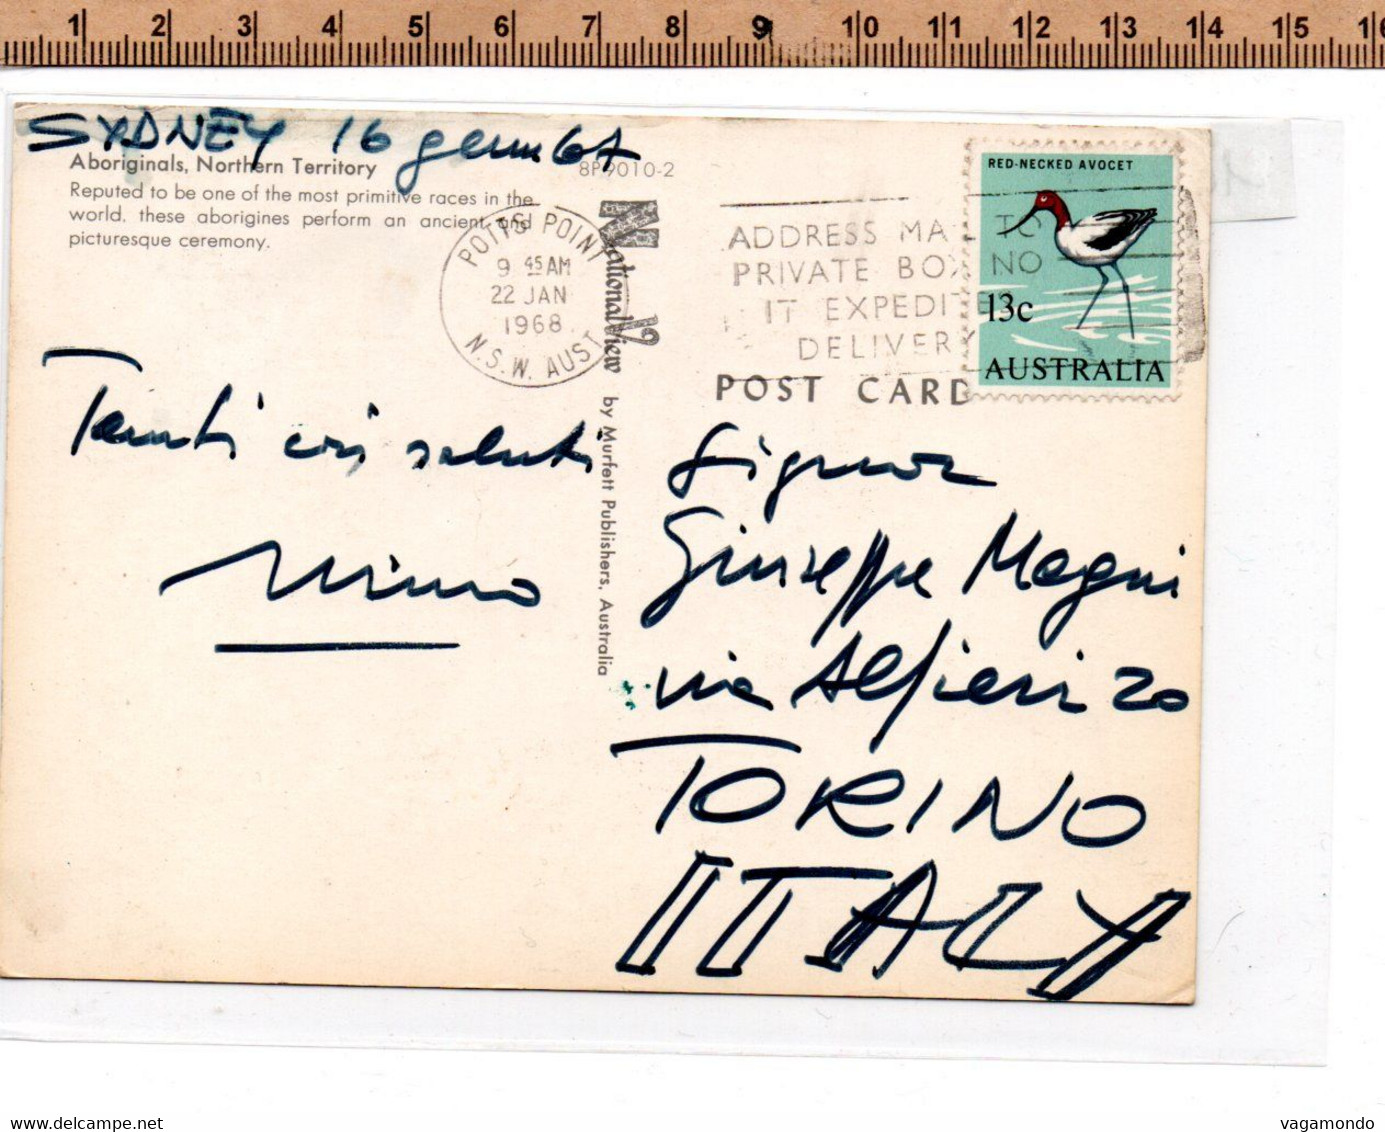 1 2 3 4 5 6 7 8 9 10 11 12 13 14 15 16
SYDNEY 16 genn 67
Aboriginals, Northern Territory
8P9010-2
Reputed to be one of the most primitive races in the
world. these aborigines perform an ancient and
picturesque ceremony.
POTTS POINT
9 45 AM
22 JAN
1968
N.S.W. AUST
National View
by Murfett Publishers, Australia
ADDRESS MAIL TO
PRIVATE BOX NO
IT EXPEDITES
DELIVERY
RED-NECKED AVOCET
13c
AUSTRALIA
POST CARD
Tanti cari saluti
Nino
Signor
Giuseppe Magni
via Alfieri 20
TORINO
ITALY
vagamondo